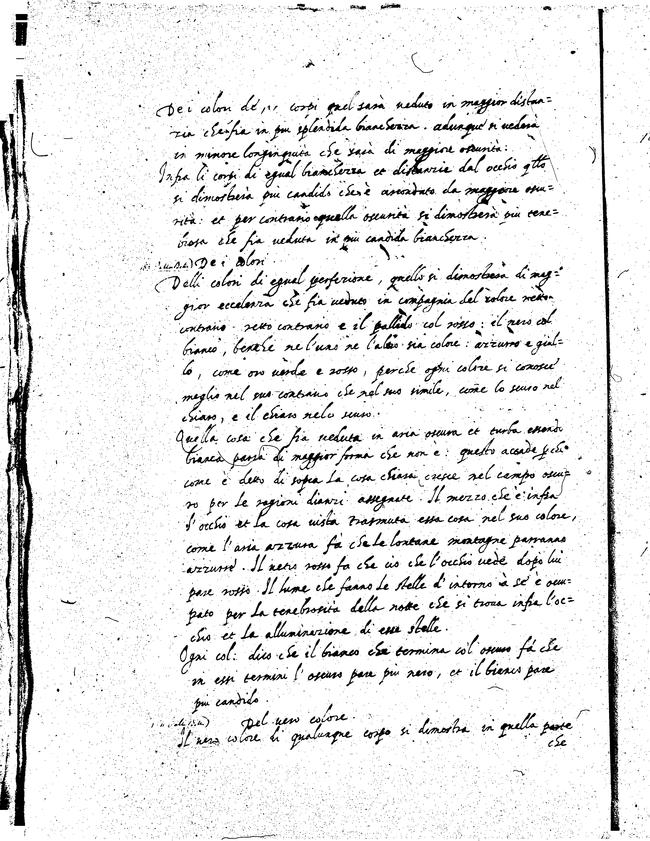 Dei colori de corpi quel sarà veduto in maggior distan=
zia che fia in piu splendida bianchezza. adunque si vederà
in minore longinquità che sarà di maggiore oscurità:
Infra li corpi di egual bianchezza et distanzia dal occhio qllo
si dimosterà piu candido che è circondato da maggiore oscu-
rità: et per contrario quella oscurità si dimosterà piu tene=
brosa che fia veduta in piu candida bianchezza.
Dei colori
Delli colori di egual perfezione, quello si dimosterà di mag-
gior eccelenza che fia veduto in compagnia del colore retto
contrario. retto contrario e il pallido col rosso: il nero col
bianco, benche ne l'uno ne l'altro sia colore: azzurro e gial-
lo, come oro verde e rosso, perche ogni colore si conosce
meglio nel suo contrario che nel suo simile, come lo scuro nel
chiaro, e il chiaro nelo scuro.
Quella cosa che fia veduta in aria oscura et turba essendo
bianca parrà di maggior forma che non e: questo accade pche
come è detto di sopra La cosa chiara cresce nel campo oscu-
ro per le ragioni dianzi assegnate. Il mezzo che è infra
l'occhio et La cosa vista trasmuta essa cosa nel suo colore,
come l'aria azzurra fà che Le lontane montagne parranno
azzurre. Il vetro rosso fa che cio che l'occhio vede dopo lui
pare rosso. Il lume che fanno Le stelle d'intorno à se è ocu-
pato per La tenebrosità della notte che si trova infra l'oc=
chio et La alluminazione di esse stelle.
Ogni col: dico che il bianco che termina col' oscuro fà che
in essi termini l'oscuro pare piu nero, et il bianco pare
piu candido.
Del vero colore.
Il vero colore di qualunque corpo si dimostra in quella parte
che